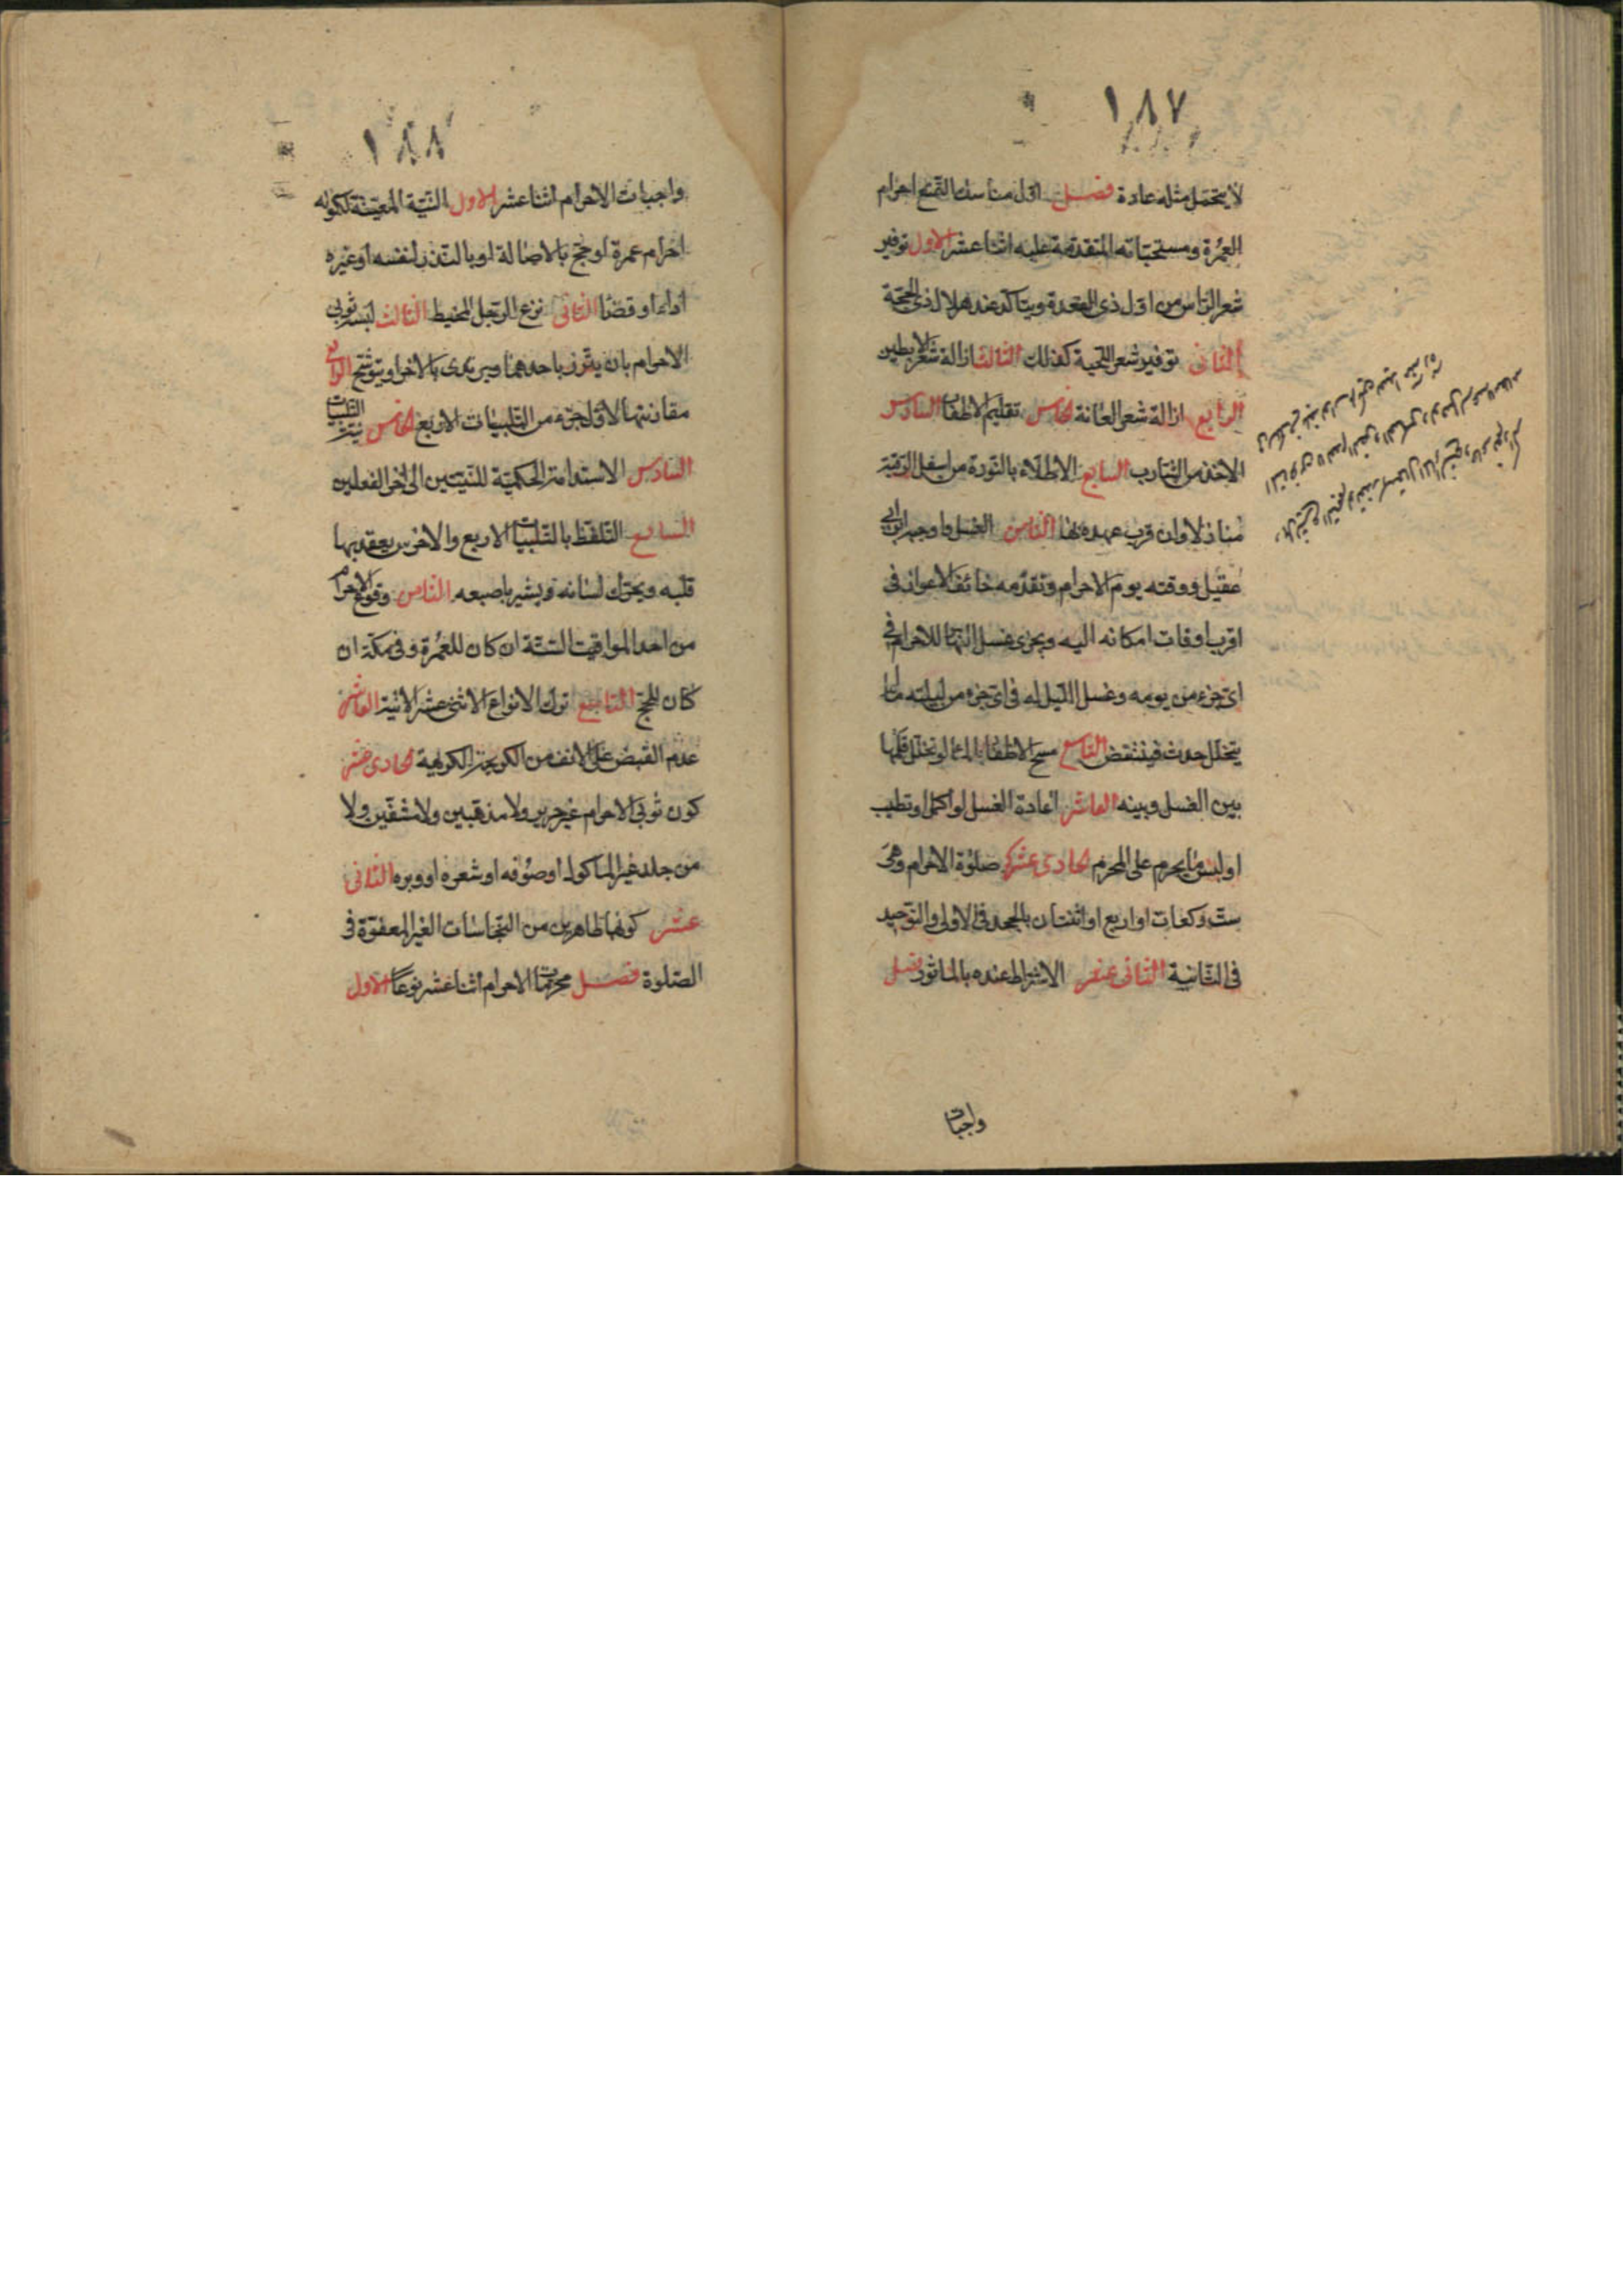 ١٨٧
لا يحتمل مثله عادة فصل اول مناسك التمتع احرام
العمرة ومستحباته المتقدمة عليه اثنا عشر الاول توفير
شعر الراس من اول ذى القعدة ويتاكد عند هلال ذى الحجة
الثانى توفير شعر اللحية كذلك الثالث ازالة شعر الابطين
الرابع ازالة شعر العانة الخامس تقليم الاظفار السادس
الاخذ من الشارب السابع الاطلاء بالنورة من اسفل الرقبة
منازلا وان قرب عهده بها الثامن الغسل واوجبه ابن ابى
عقيل ووقته يوم الاحرام وتقدمه خائف الاعواز فى
اقرب اوقات امكانه اليه ويجزى غسل النهار للاحرام فى
اى جزء من يومه وغسل الليل له فى اى جزء من ليلته ما لم
يتخلل حدث فينتقض التاسع مسح الاظفار بالماء لو تخلل قلمها
بين الغسل وبينه العاشر اعادة الغسل لو اكل او تطيب
او لبس ما يحرم على المحرم الحادى عشر صلوة الاحرام وهى
ست ركعات او اربع او اثنتان بالجحد فى الاولى والتوحيد
فى الثانية الثانى عشر الاشتراط عنده بالماثور فصل
واجبات
١٨٨
واجبات الاحرام اثنا عشر الاول النية المعينة لكونه
احرام عمرة او حج بالاصالة او بالنذر لنفسه او غيره
اداء او قضا الثانى نزع الرجل المخيط الثالث لبس ثوبى
الاحرام بان يتزر باحدهما ويرتدى بالاخر او يتوشح الرابع
مقارنتها لاول جزء من التلبيات الاربع الخامس نية التلبيات
السادس الاستدامة الحكمية للنيتين الى اخر الفعلين
السابع التلفظ بالتلبيات الاربع والاخرس يعقد بها
قلبه ويحرك لسانه ويشير باصبعه الثامن وقوع الاحرام
من احد المواقيت الستة ان كان للعمرة وفى مكة ان
كان للحج التاسع ترك الانواع الاثنى عشر الاتية العاشر
عدم القبض على الانف من الكريهة الحادى عشر
كون ثوبى الاحرام غير حرير ولا مذهبين ولا مشفين ولا
من جلد غير الماكول او صوفه او شعره او وبره الثانى
عشر كونهما طاهرين من النجاسات الغير المعفوة فى
الصلوة فصل محرمات الاحرام اثنا عشر نوعا الاول